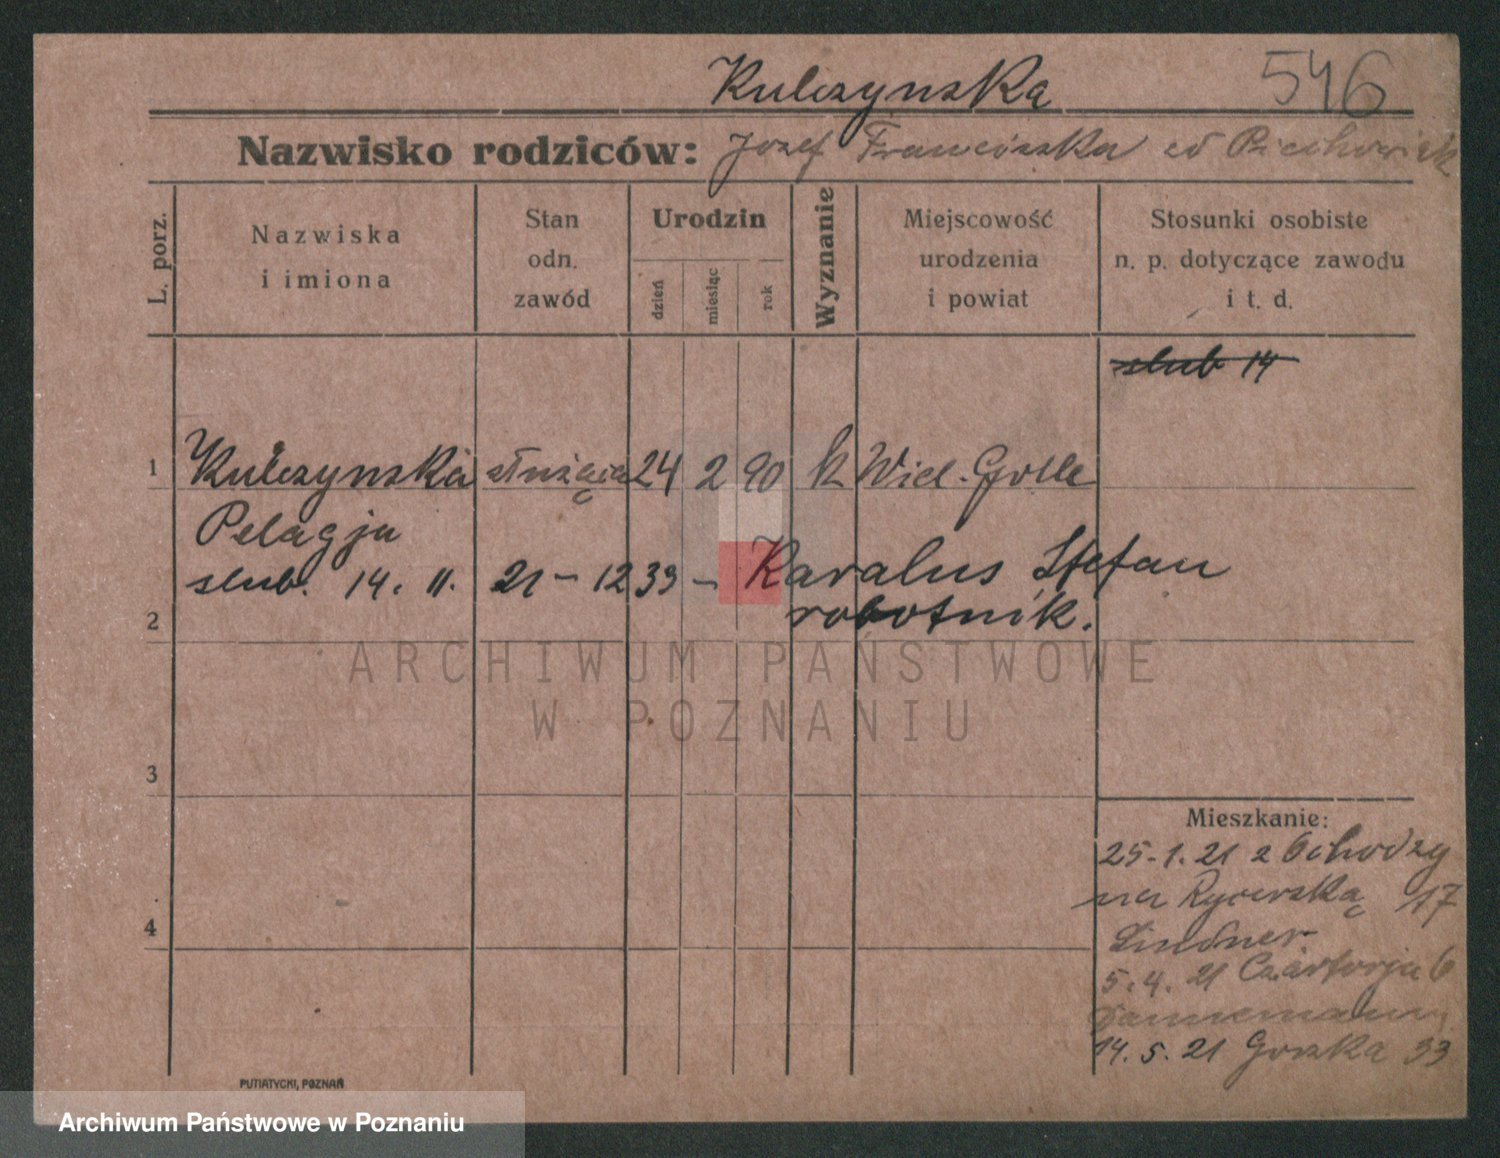 Kulczynska 546
Nazwisko rodziców: Jozef Franciszka
L. porz.
Nazwiska
i imiona
Stan
odn.
zawód
Urodzin
dzień
miesiąc
rok
Wyznanie
Miejscowość
urodzenia
i powiat
Stosunki osobiste
n. p. dotyczące zawodu
i t. d.
slub 14
1 Kulczynska służąca 24 2 90 k Wiel. Golle
Pelagja
slub. 14. 11. 21 - 1239 - Karalus Stefan
2 robotnik.
ARCHIWUM PAŃSTWOWE
W POZNANIU
3
Mieszkanie:
25-1.21 z Ochodzy
4 na Rycerską 17
Lindner
5.4.21 6
14.5.21 33
PUTIATYCKI, POZNAŃ
Archiwum Państwowe w Poznaniu